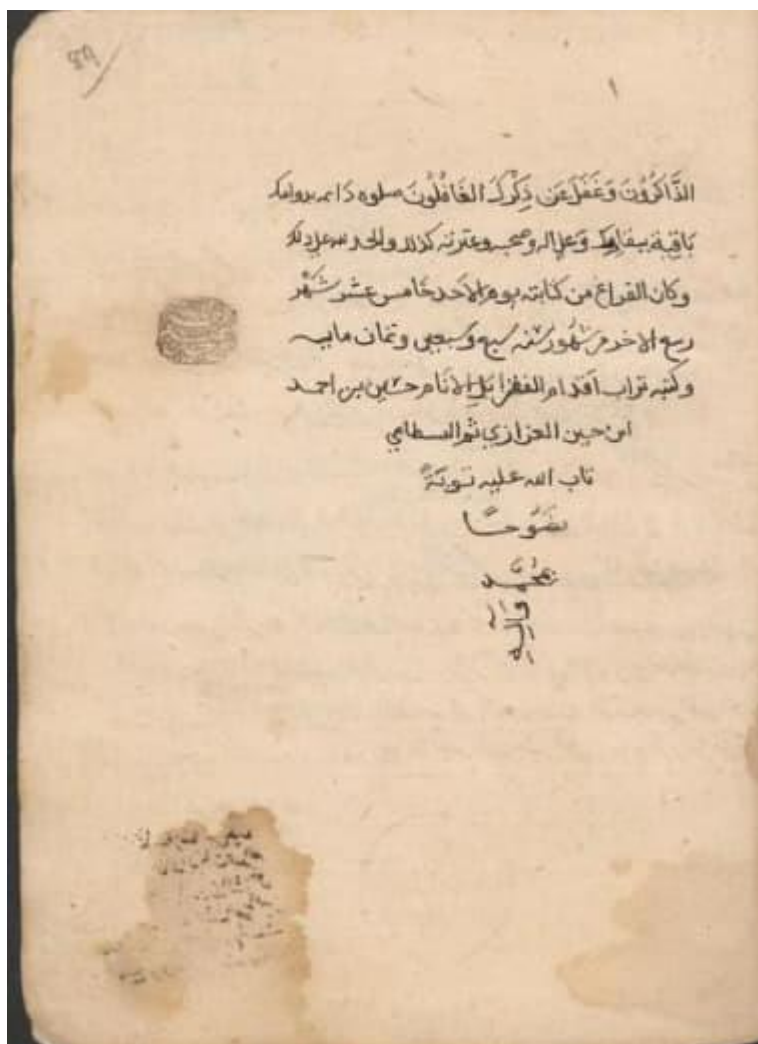 ٨٩
الذَّاكرُوْنَ وَغَفَلَ عَن ذِكْرِكَ الغَافِلُوْنَ صلوه دَائمه بدوامك
بَاقِية ببقايك وَعلى اله وصحبه وعترته كذلك والحمد لله على ذلك
وكان الفراغ من كتابته يوم الاَحد خَامس عشر شَهْر
ربيع الاخر من شهُور سَنه سبع وسَبعين وثمان مايه
وكتبه تراب اَقدام الفقرا بَل الانَام حسَين بن احمد
ابن حسين العزازي ثم البسطامي
تاب الله عليه توبَةً
نصَوُحًا
بمُحَمَّد
وَآلِهِ